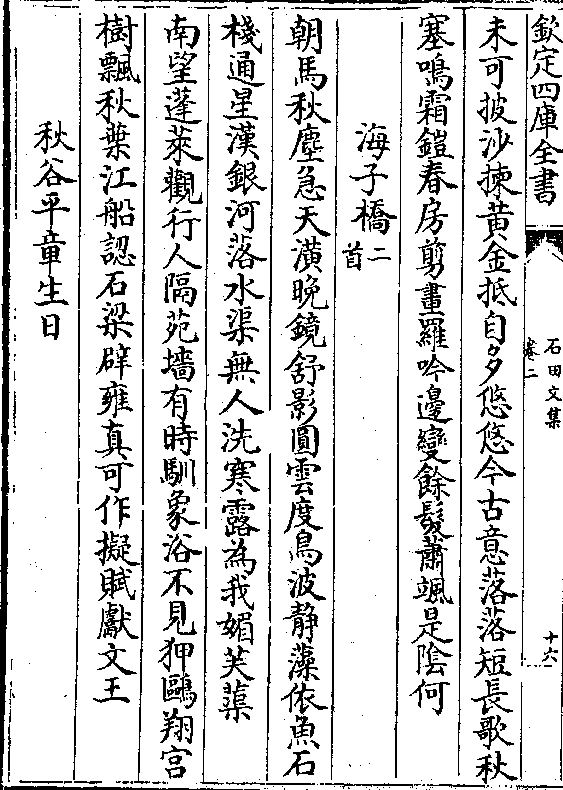 欽定四庫全書
石田文集
卷二
十六
未可披沙揀黄金抵自多悠悠今古意落落短長歌秋
塞鳴霜鎧春房剪畫羅吟邊變餘髮蕭颯是陰何
海子橋二首
朝馬秋塵急天潢晩鏡舒影圓雲度鳥波静藻依魚石
棧通星漢銀河落水渠無人洗寒露為我媚芙蕖
南望蓬萊觀行人隔苑墻有時馴象浴不見狎鷗翔宫
樹飄秋葉江船認石梁辟雍真可作擬賦獻文王
秋谷平章生日